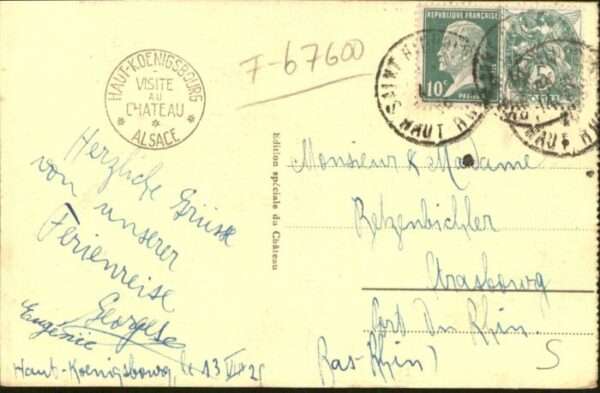 HAUT-KOENIGSBOURG
VISITE
AU
CHATEAU
ALSACE
F-67600
REPUBLIQUE FRANÇAISE
10
SAINT HI
Edition spéciale du Château
Herzliche Grüsse
von unserer
Ferienreise
Georges
Eugénie
Haut-Koenigsbourg, le 13
Monsieur & Madame
Retzenbichler
Strasbourg
Port du Rhin
(Bas-Rhin)
S